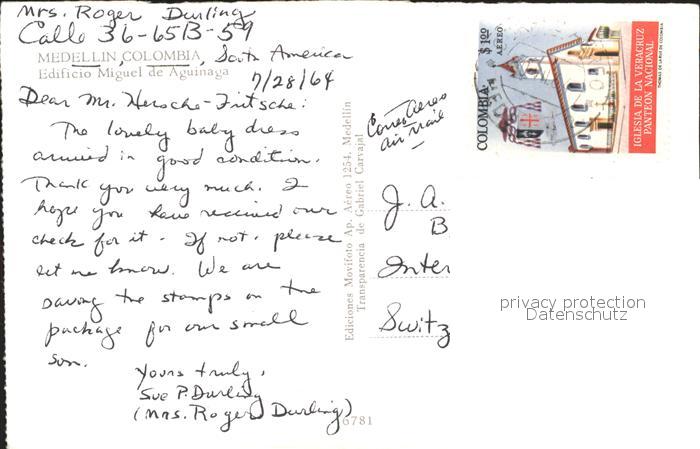 Mrs. Roger Durling
Calle 36-65B-59
MEDELLIN, COLOMBIA, South America
Edificio Miguel de Aguinaga
7/28/64
Dear Mr. Hersche-Fritsche:
The lovely baby dress
arrived in good condition.
Thank you very much. I
hope you have received our
check for it. If not, please
let me know. We are
saving the stamps on the
package for our small
son.
Yours truly,
Sue P. Durling
(Mrs. Roger Durling)
6781
Ediciones Movifoto Ap. Aéreo 1254, Medellín
Transparencia de Gabriel Carvajal
Correo Aereo
air mail
J. A.
B
Inter
Switz
COLOMBIA
$1.00
AEREO
IGLESIA DE LA VERACRUZ
PANTEON NACIONAL
THOMAS DE LA RUE DE COLOMBIA
privacy protection
Datenschutz